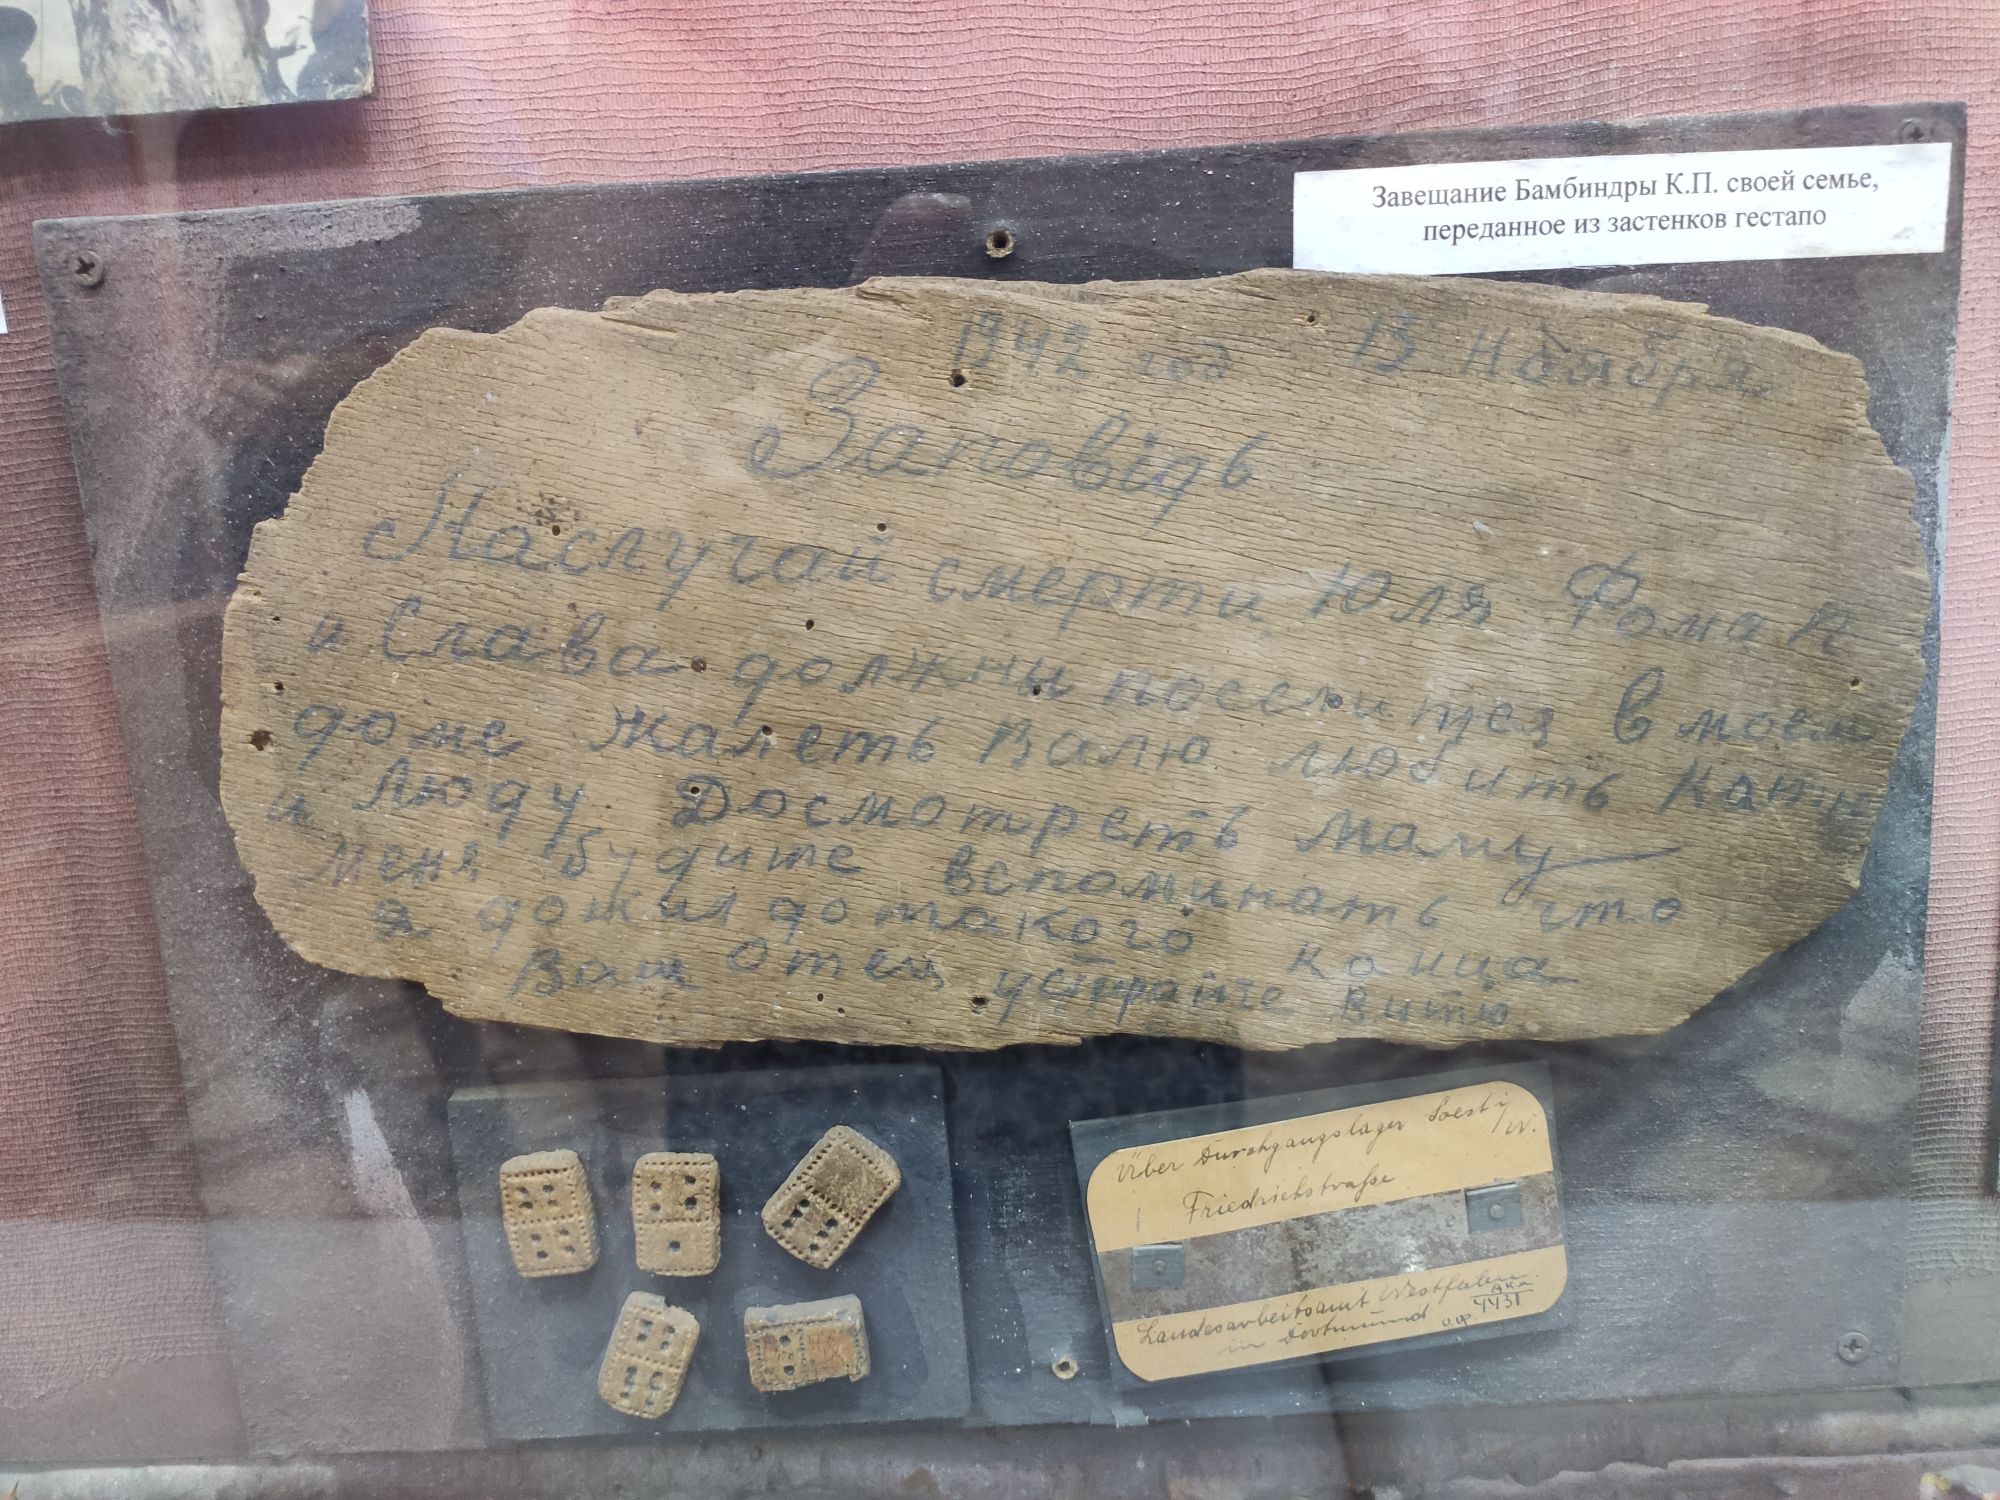 Завещание Бамбиндры К.П. своей семье,
переданное из застенков гестапо
1942 год 13 ноября
Заповідь
Наслучай смерти Юля Фома
и Слава должны поселитея в моем
доме жалеть Валю любить Катю
и Люду Досмотреть маму
меня будите вспоминать что
я дожил до такого канца
Ваш отец устрайте Витю
Über Durchgangslager Soest i/W.
Friedrichstraße
Landesarbeitsamt Westfalen
in Dortmund
Акл
4431